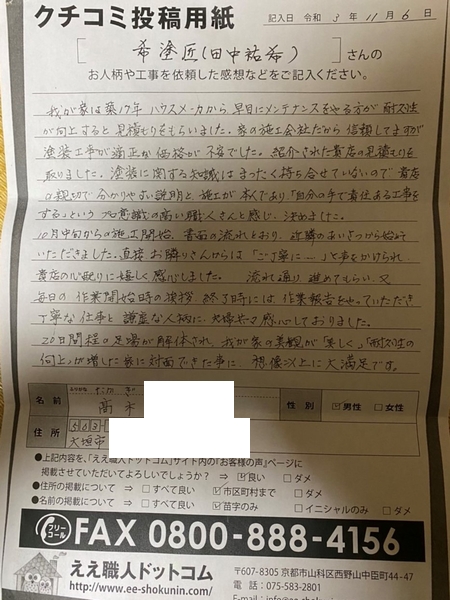 クチコミ投稿用紙
記入日 令和 3 年 11 月 6 日
[ 希塗匠(田中祐希) ] さんの
お人柄や工事を依頼した感想などをご記入ください。
我が家は築17年 ハウスメーカから 早目にメンテナンスをやる方が 耐久性
が向上すると 見積もりをもらいました。家の施工会社だから 信頼してますが
塗装工事が適正な価格が 不安でした。紹介された貴店の見積もりを
取りました。塗装に関する知識は まったく持ち合せていないので 貴店
の親切で 分かりやすい説明と 施工が 本人であり、「自分の手で責任ある工事を
する」という プロ意識の高い職人さんと感じ、決めました。
10月中旬からの施工開始、書面の流れどおり、近隣のあいさつから始めて
いただきました。直接 お隣りさんからは 「ご丁寧に…」と声をかけられ、
貴店の心配りに 嬉しく 感心しました。 流れ通り 進めてもらい、又
毎日の 作業開始時の挨拶 終了時には 作業報告をいただき
丁寧な仕事と 謙虚な人柄に、夫婦共々 感心しておりました。
20日間程の足場が解体され、我が家の美観が「美しく」「耐久性の
向上」が増した 家に対面できた事に、想像以上に 大満足です。
ふりがな たかぎ
名前 高木
性別 ☑男性 □女性
住所 503-
大垣市
●上記内容を、「ええ職人ドットコム」サイト内の「お客様の声」ページに
掲載させていただいてよろしいでしょうか？ ⇒ ☑良い □ダメ
●住所の掲載について ⇒ □すべて良い ☑市区町村まで □ダメ
●名前の掲載について ⇒ □すべて良い ☑苗字のみ □イニシャルのみ □ダメ
フリーコール FAX 0800-888-4156
ええ職人ドットコム
http://www.ee-shokunin.com/
〒607-8305 京都市山科区西野山中臣町44-47
電話：075-583-2801